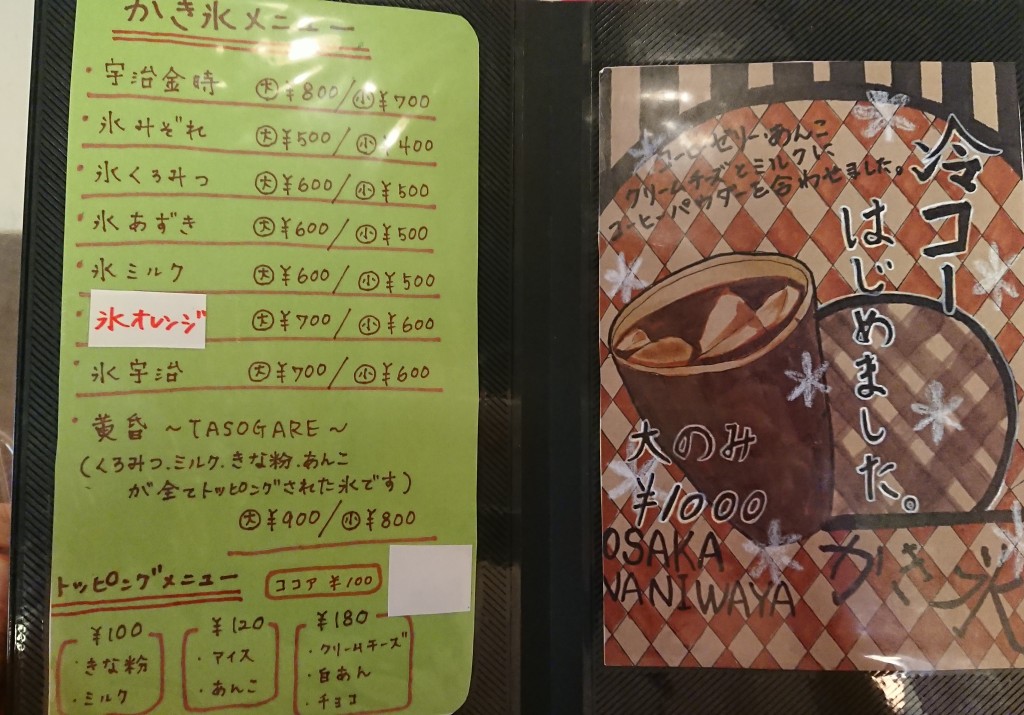 かき氷メニュー
・宇治金時 大¥800/小¥700
・氷みぞれ 大¥500/小¥400
・氷くろみつ 大¥600/小¥500
・氷あずき 大¥600/小¥500
・氷ミルク 大¥600/小¥500
・氷オレンジ 大¥700/小¥600
・氷宇治 大¥700/小¥600
・黄昏 ~TASOGARE~
(くろみつ.ミルク.きな粉.あんこ
が全てトッピングされた氷です)
大¥900/小¥800
トッピングメニュー ココア ¥100
¥100
・きな粉
・ミルク
¥120
・アイス
・あんこ
¥180
・クリームチーズ
・白あん
・チョコ
冷コー
はじめました。
コーヒーゼリー・あんこ
クリームチーズとミルクに
コーヒーパウダーを合わせました。
大のみ
¥1000
OSAKA
NANIWAYA
かき氷